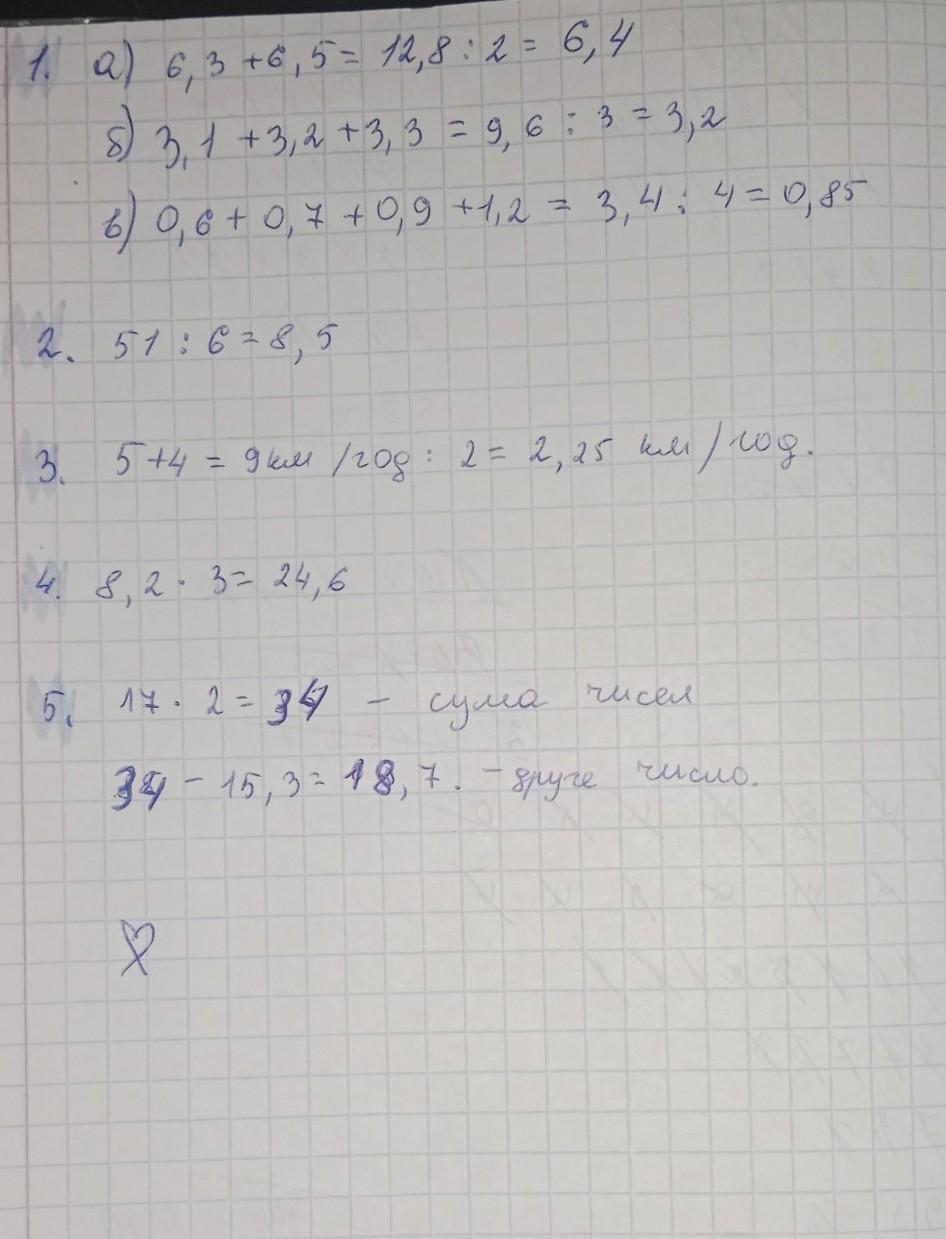 1. а) 6,3 + 6,5 = 12,8 : 2 = 6,4
б) 3,1 + 3,2 + 3,3 = 9,6 : 3 = 3,2
в) 0,6 + 0,7 + 0,9 + 1,2 = 3,4 : 4 = 0,85
2. 51 : 6 = 8,5
3. 5 + 4 = 9 км/год : 2 = 2,25 км/год.
4. 8,2 · 3 = 24,6
5. 17 · 2 = 34 – сума чисел
34 – 15,3 = 18,7. – друге число.